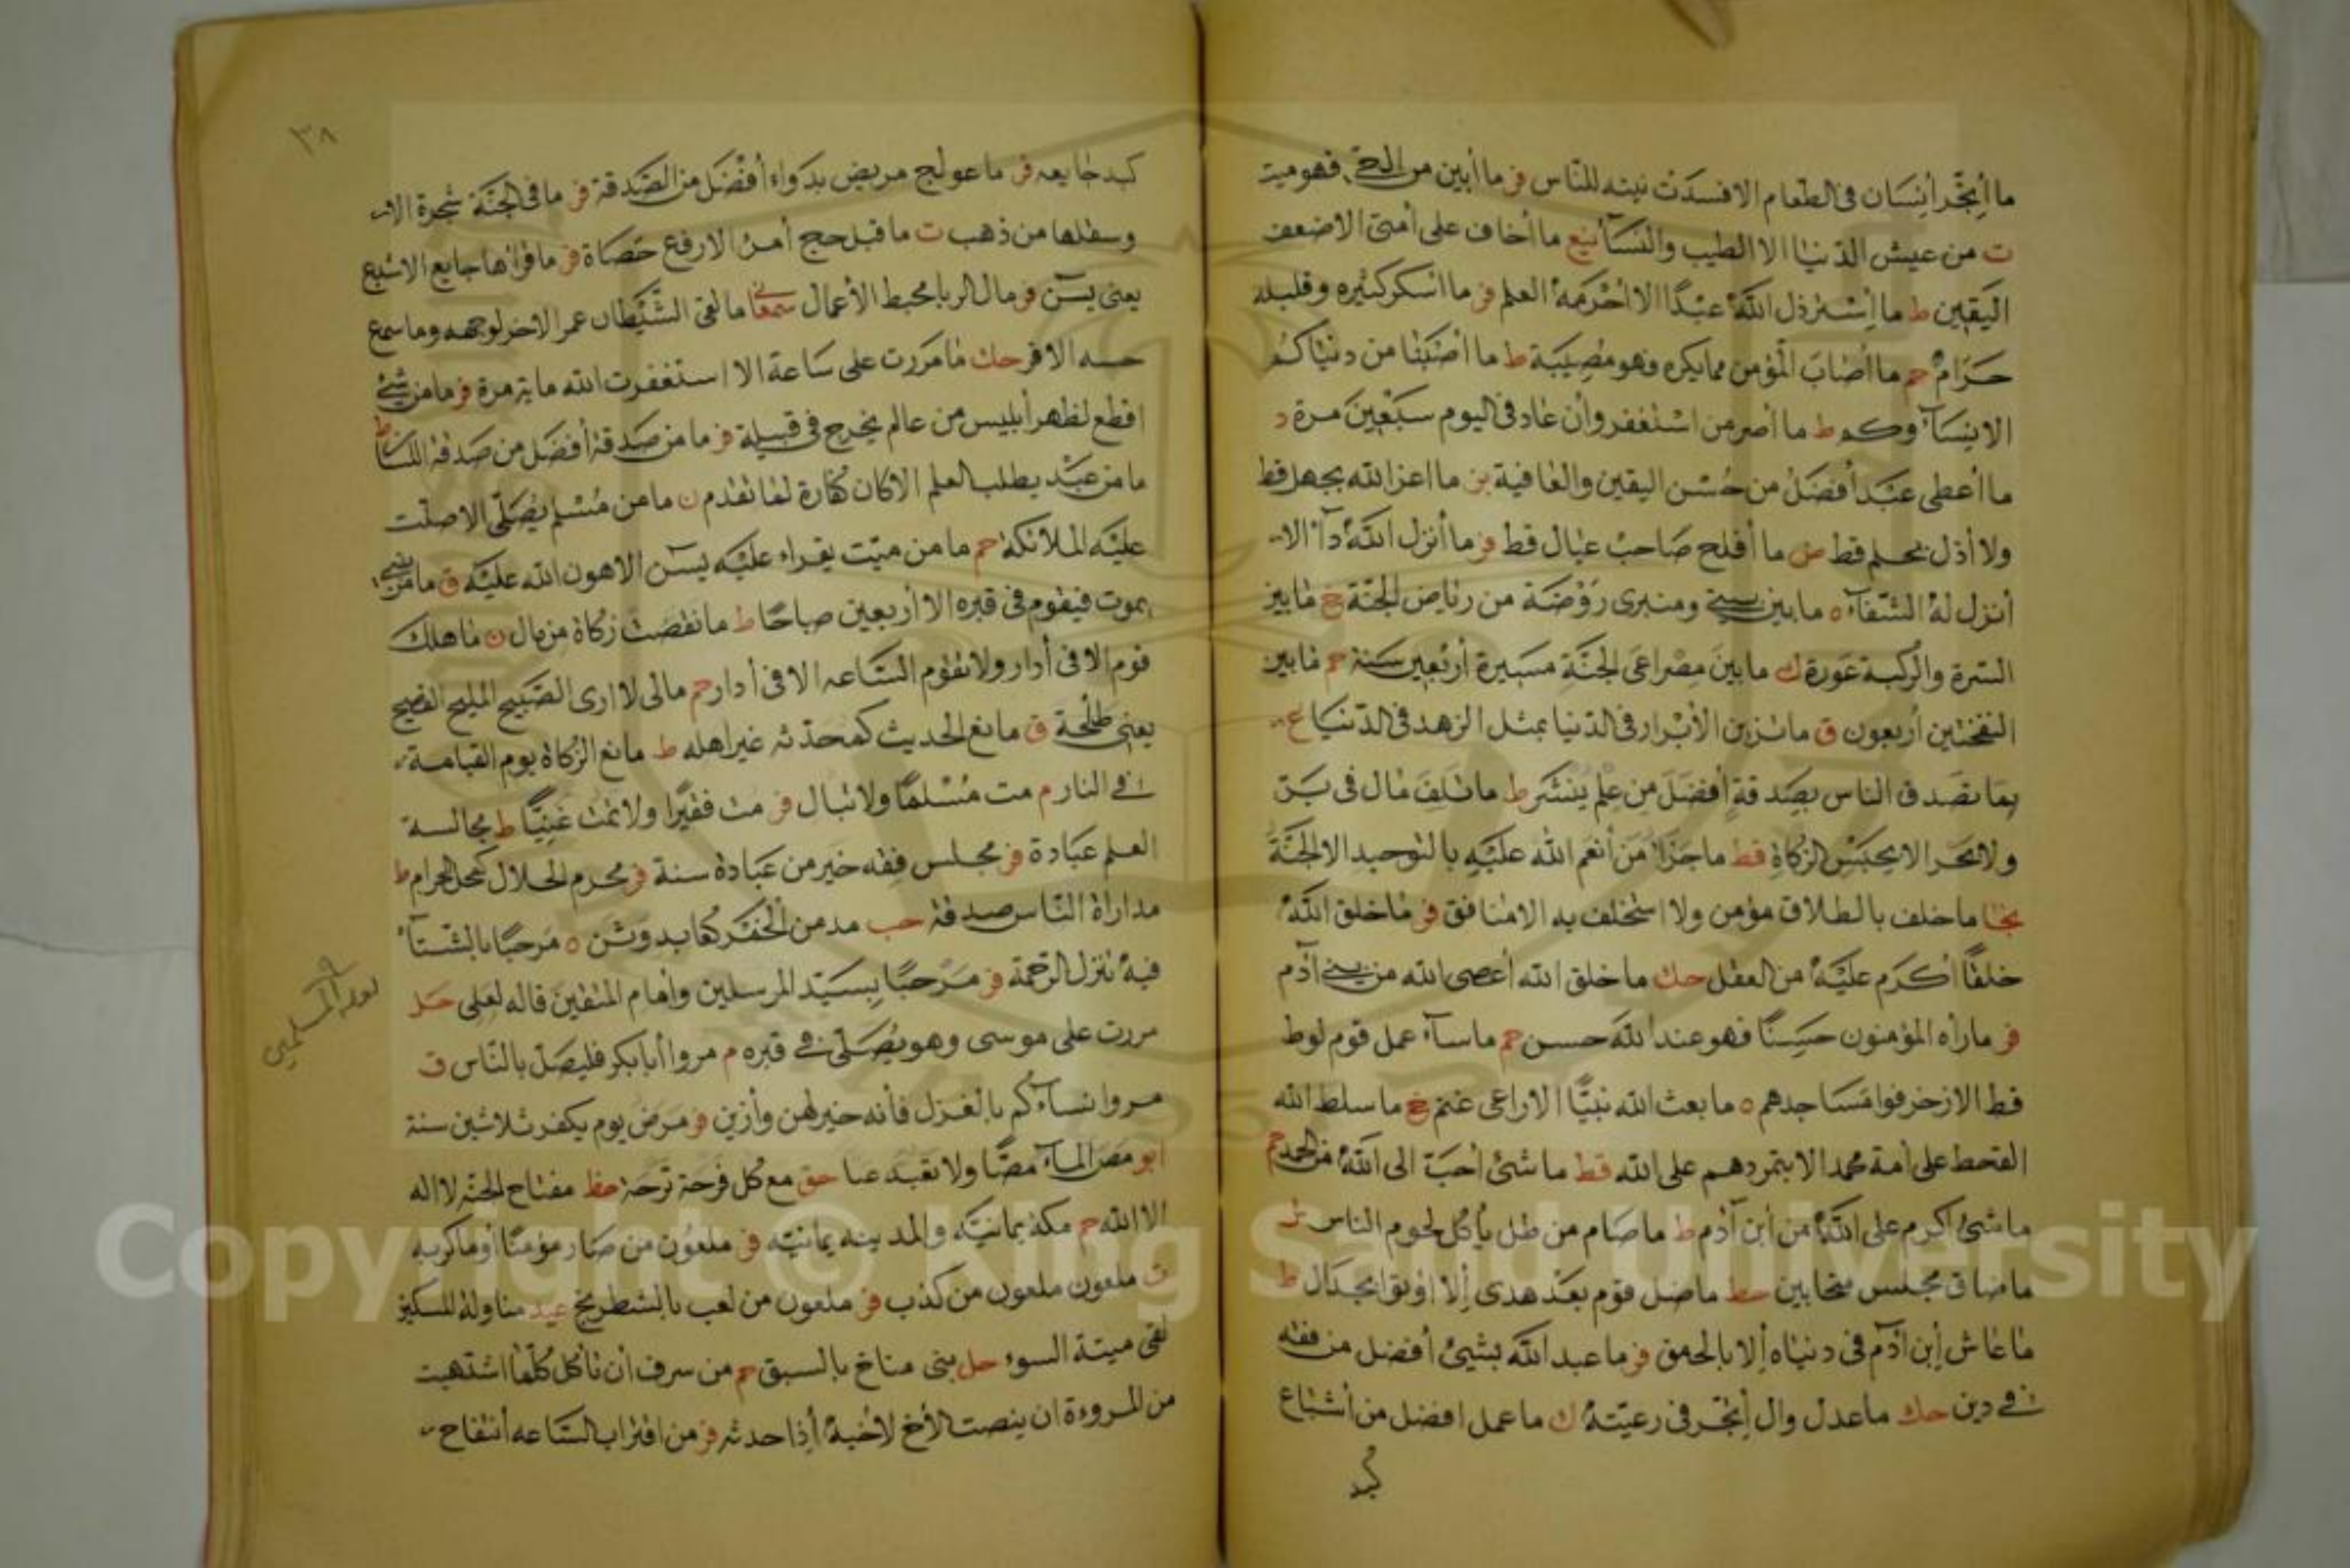 ما أتجر إنسان في الطعام الا فسدت نيته للناس فر ما أبين من الحي فهو ميت
ت من عيش الدنيا الا الطيب والنساء نيع ما أخاف على أمتي الا ضعف
اليقين ط ما إسترذل الله عبدًا الا احرمه العلم فر ما اسكر كثيره وقليله
حرام حم ما أصاب المؤمن مما يكره وهو مصيبة ط ما اصبنا من دنياكم
الا نساء وكم ط ما أصر من استغفر وأن عاد في اليوم سبعين مرة د
ما أعطى عبد أفضل من حسن اليقين والعافية بز ما اعز الله بجهل قط
ولا أذل بحلم قط ض ما أفلح صاحب عيال قط فر ما أنزل الله دآء الا
أنزل له الشفآء ه ما بين بيتي ومنبرى روضة من رياض الجنة خ ما بين
السرة والركبة عورة ك ما بين مصراعى الجنة مسيرة أربعين سنة حم ما بين
النفختين أربعون ق ما تزين الأبرار في الدنيا بمثل الزهد في الدنيا ع
ما تصدق الناس بصدقة أفضل من علم ينتشر ط ما تلف مال في بر
ولا بحر الا بحبس الزكاة قط ما جزآ من أنعم الله عليه بالتوحيد الا الجنة
نجا ما حلف بالطلاق مؤمن ولا استحلف به الا منافق فر ما خلق الله
خلقًا أكرم عليه من العقل حك ما خلق الله أعصى الله من بني آدم
فر ما رأه المؤمنون حسنًا فهو عند الله حسن حم ما سآء عمل قوم لوط
قط الا زخرفوا مساجدهم ه ما بعث الله نبيًا الا راعى غنم خ ما سلط الله
القحط على أمة محمد الا بتمردهم على الله قط ما شئ أحب الى الله من الحمد حم
ما شئ اكرم على الله من أبن آدم ط ما صام من ظل يأكل لحوم الناس
ما ضاق مجلس متحابين خط ما ضل قوم بعد هدى إلا اوتوا الجدال ط
ما عاش إبن آدم في دنياه إلا بالحمق فر ما عبد الله بشيئ أفضل من فقه
في دين حك ما عدل وال إتجر في رعيته ك ما عمل افضل من أشباع
كبد
٣٨
كبد جايعه فر ما عولج مريض بدواء أفضل من الصدقة فر ما في الجنة شجرة الا
وسطلها من ذهب ت ما قبل حج أمرئ الا رفع حصاة فر ما قرأها جايع الا شبع
يعنى يسٓ فر مال الربا محبط الأعمال سمعا ما لقى الشيطان عمر الا خر لوجهه وما سمع
حسه الا فر حك ما مررت على ساعة الا استغفرت الله ماية مرة فر ما من شئ
اقطع لظهر أبليس من عالم يخرج في قبيلة فر ما من صدقة أفضل من صدقة اللسان ط
ما من عبد يطلب العلم الا كان كفارة لما تقدم ن ما من مسلم يصلى الا صلت
عليه الملائكة حم ما من ميت يقراء عليه يسٓ الا هون الله عليه ق ما من نبي
يموت فيقوم في قبره الا أربعين صباحًا ط ما نقصت زكاة من مال ن ما هلك
قوم الا في أدار ولا تقوم الساعه الا في أدار حم مالى لا ارى الصبيح المليح الفصيح
يعنى طلحة ق مانع الحديث كمحدثه غير اهله ط مانع الزكاة يوم القيامة
في النار م مت مسلمًا ولا تبال فر مت فقيرًا ولا تمت غنيًا ط مجالسة
العلم عبادة فر مجلس فقه خير من عبادة سنة فر محرم الحلال كمحل الحرام ط
مداراة الناس صدقة حب مدمن الخمر كعابد وثن ه مرحبًا بالشتآء
فيه تنزل الرحمة فر مرحبًا بسيد المرسلين وأمام المتقين قاله لعلى حل
مررت على موسى وهو يصلى في قبره م مروا أبابكر فليصل بالناس ق
مروا نسآءكم بالغزل فأنه خير لهن وأزين فر مرض يوم يكفر ثلاثين سنة
ابو مص المآء مصًا ولا تعبه عبا حق مع كل فرحة ترحة خط مفتاح الجنه لا اله
الا الله حم مكة يمانيه والمدينه يمانيه فر ملعون من ضار مؤمنًا أو ماكر به
ت ملعون ملعون من كذب فر ملعون من لعب بالشطرنج عبد مناولة المسكين
تقى ميتة السوء حل منى مناخ بالسبق حم من سرف ان تأكل كلما اشتهيت
من المروءة ان ينصت الأخ لأخيه أذا حدثه فر من اقتراب الساعه أنتفاح